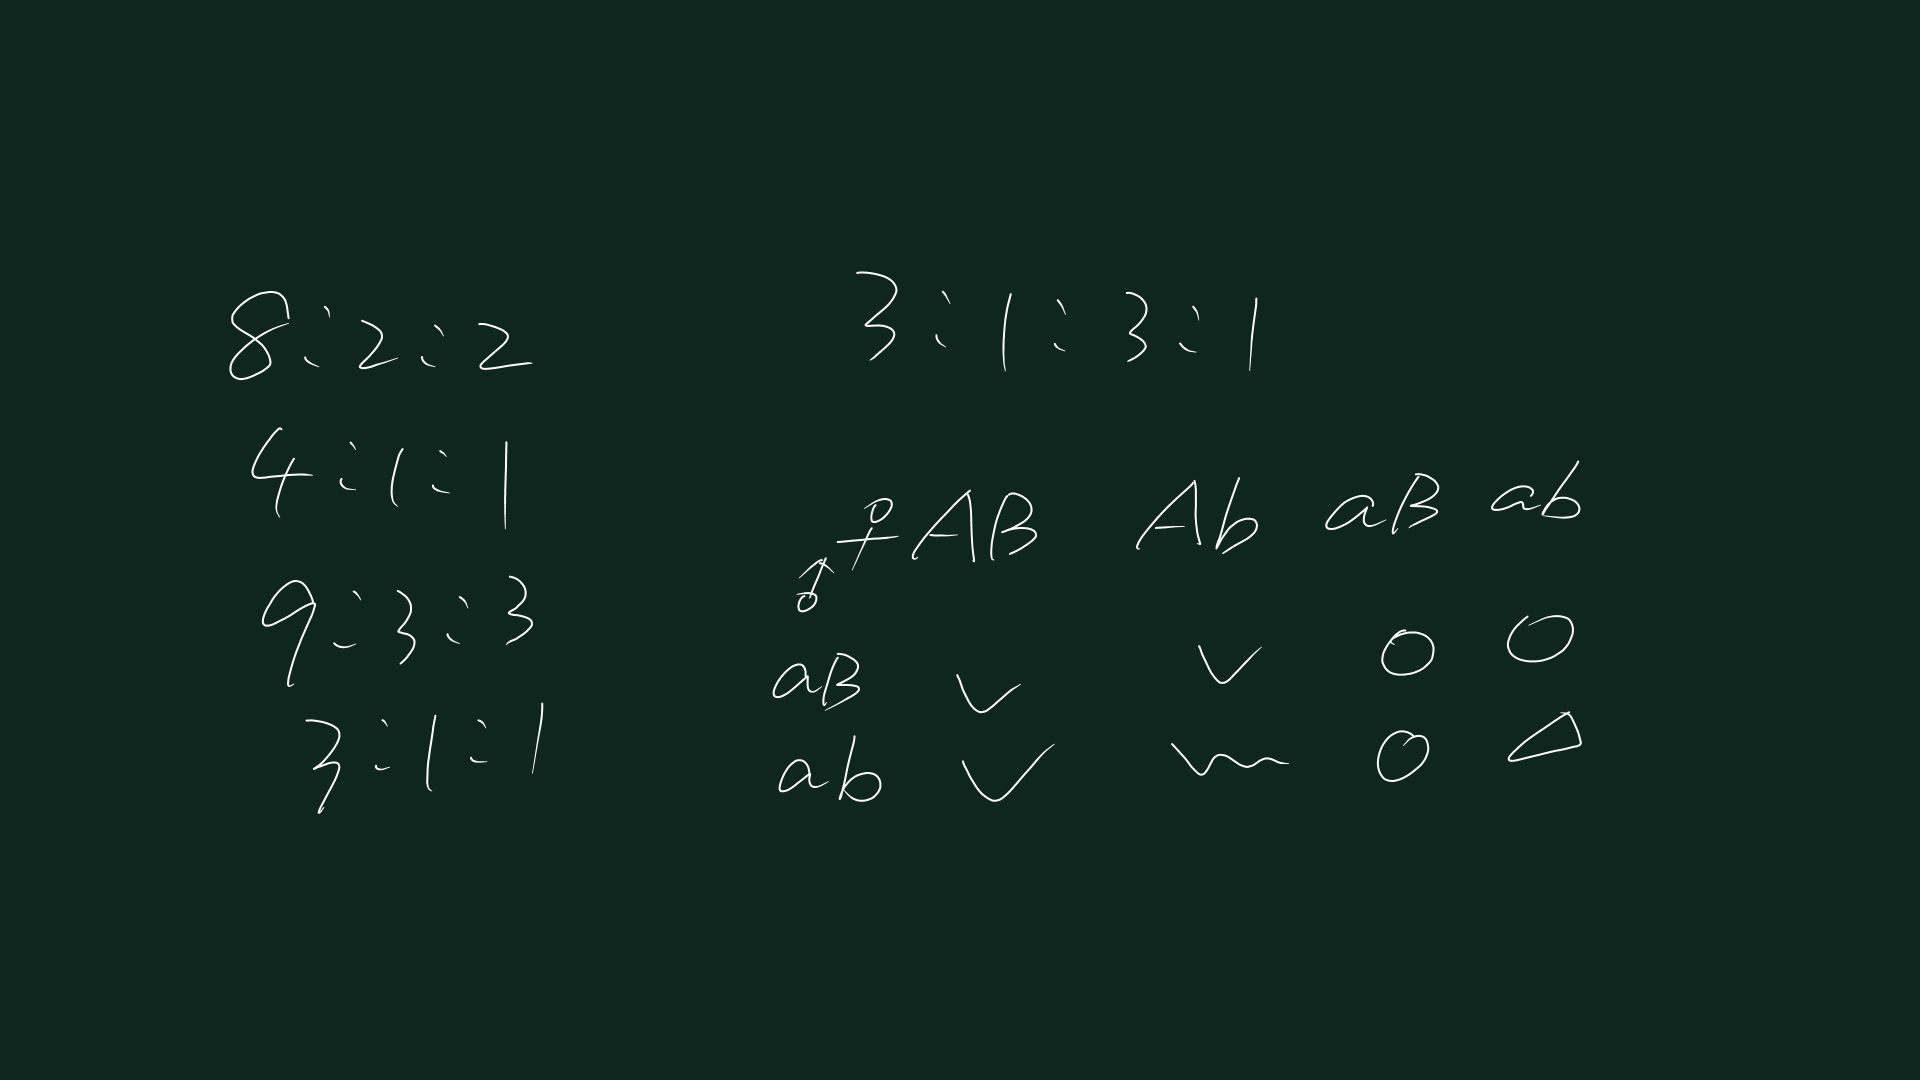 8:2:2
4:1:1
9:3:3
3:1:1
3:1:3:1
♀ AB Ab aB ab
♂
aB ✓ ✓ ○ ○
ab ✓ 〰 ○ △